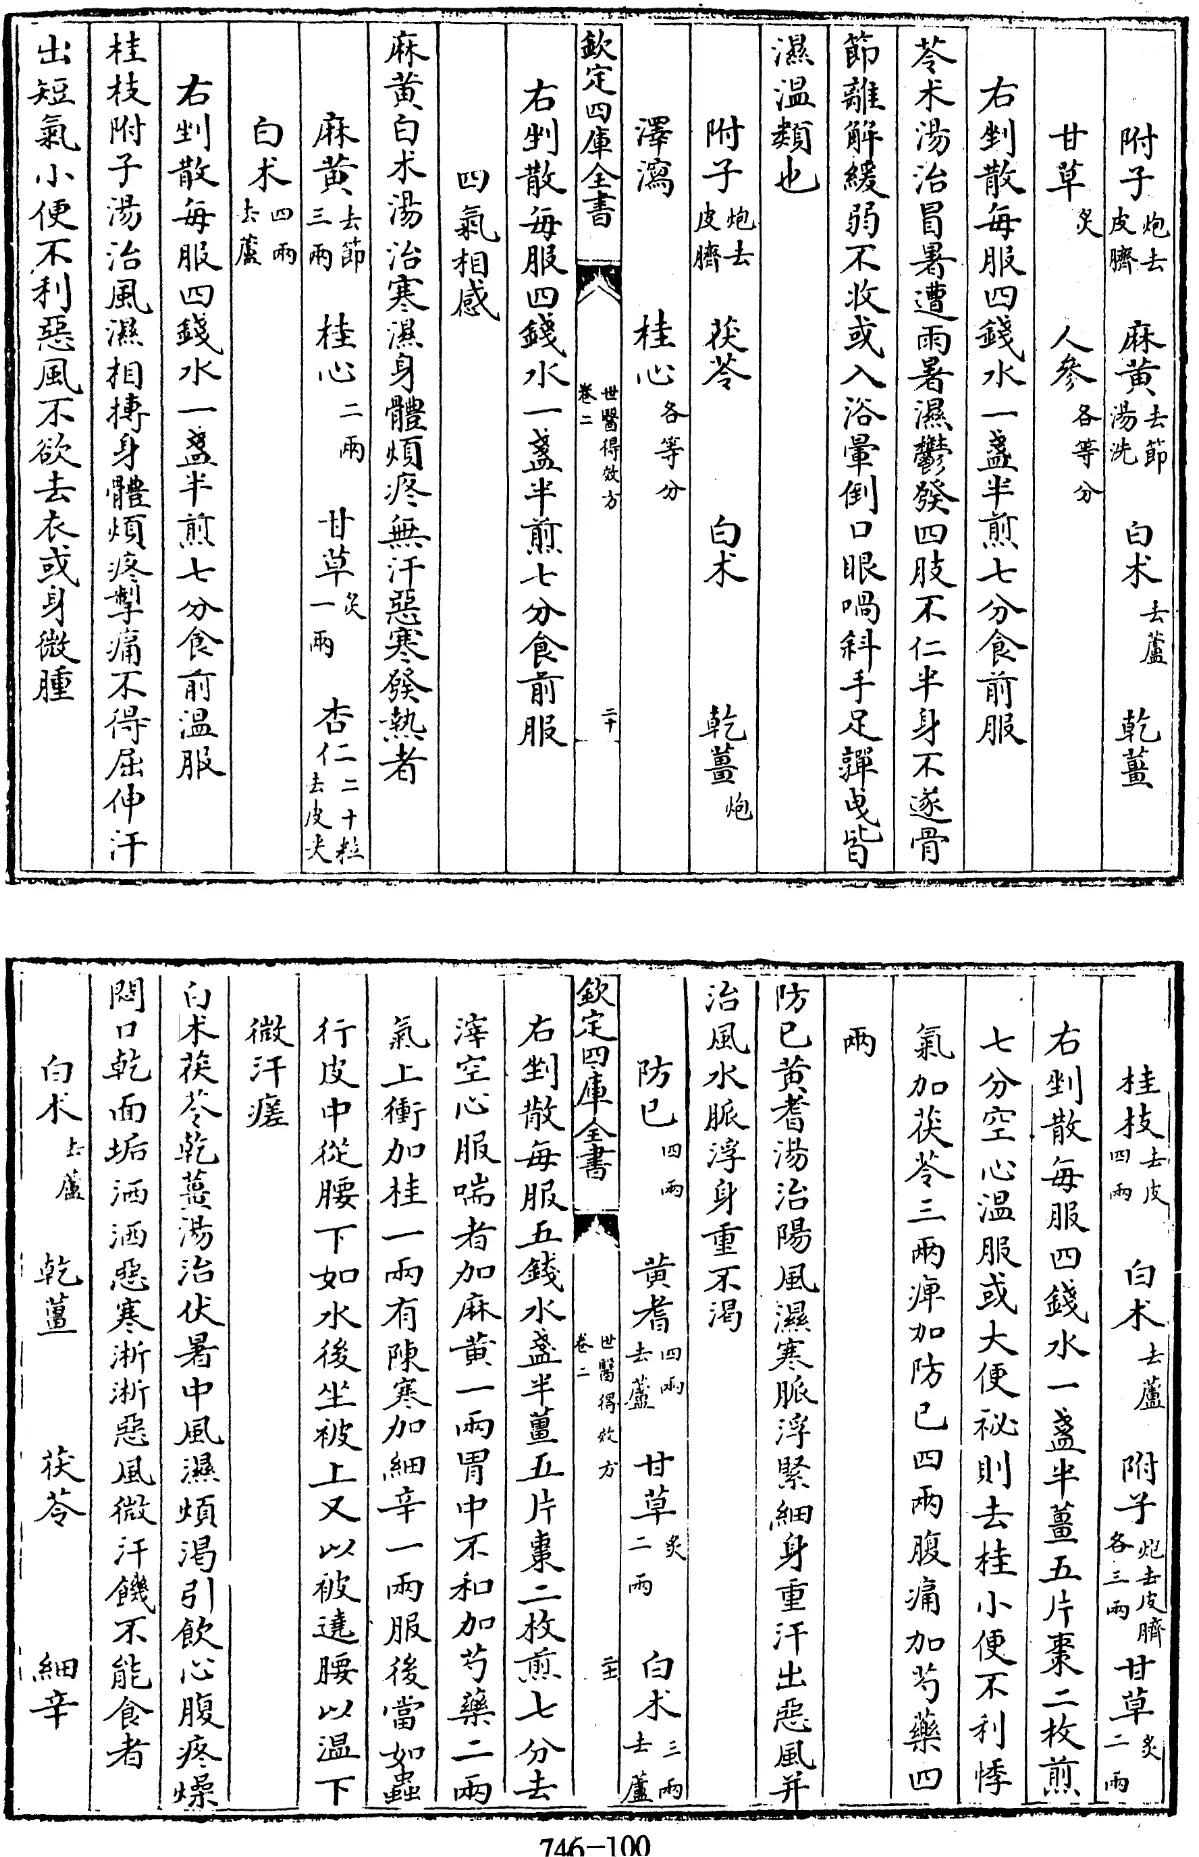 附子炮去皮臍　麻黄去節湯洗　白术去蘆　乾薑
甘草炙　人參各等分
右剉散每服四錢水一盞半煎七分食前服
苓术湯治冒暑遭雨暑濕鬱發四肢不仁半身不遂骨
節離解緩弱不收或入浴暈倒口眼喎斜手足嚲曳皆
濕温類也
附子炮去皮臍　茯苓　白术　乾薑炮
澤瀉　桂心各等分
欽定四庫全書　世醫得效方卷二　二十
右剉散每服四錢水一盞半煎七分食前服
四氣相感
麻黄白术湯治寒濕身體煩疼無汗惡寒發熱者
麻黄去節三兩　桂心二兩　甘草炙一兩　杏仁二十粒去皮尖
白术四兩去蘆
右剉散每服四錢水一盞半煎七分食前温服
桂枝附子湯治風濕相摶身體煩疼掣痛不得屈伸汗
出短氣小便不利惡風不欲去衣或身微腫
桂枝去皮四兩　白术去蘆　附子炮去皮臍各三兩　甘草炙二兩
右剉散每服四錢水一盞半薑五片棗二枚煎
七分空心温服或大便祕則去桂小便不利悸
氣加茯苓三兩痺加防已四兩腹痛加芍藥四
兩
防已黄耆湯治陽風濕寒脈浮緊細身重汗出惡風并
治風水脈浮身重不渴
防已四兩　黄耆四兩去蘆　甘草炙二兩　白术三兩去蘆
欽定四庫全書　世醫得效方卷二　二十一
右剉散每服五錢水盞半薑五片棗二枚煎七分去
滓空心服喘者加麻黄一兩胃中不和加芍藥二兩
氣上衝加桂一兩有陳寒加細辛一兩服後當如蟲
行皮中從腰下如水後坐被上又以被遶腰以温下
微汗瘥
白术茯苓乾薑湯治伏暑中風濕煩渴引飲心腹疼燥
悶口乾面垢洒洒惡寒淅淅惡風微汗饑不能食者
白术去蘆　乾薑　茯苓　細辛
746-100